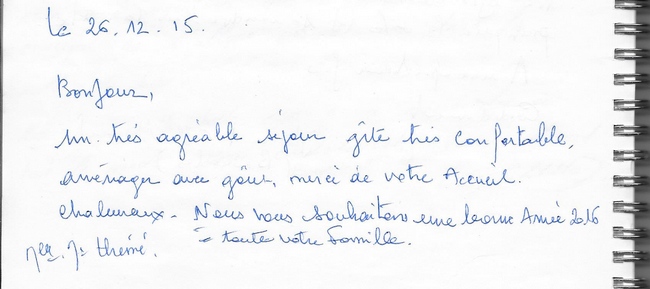 Le 26.12.15.
Bonjour,
un très agréable séjour gîte très confortable,
aménager avec goût, merci de votre Accueil.
chaleureux - Nous vous souhaitons une bonne Année 2016
à toute votre Famille.